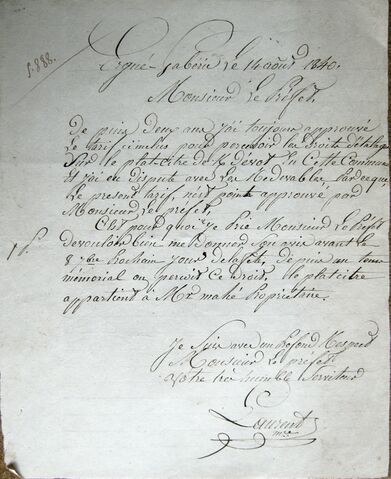 5.888.
Ergué-Gabéric le 14 août 1840.
Monsieur le Préfet,
De puis Deux ans j'ai toujours approuvé
le tarif ci inclus pour percevoir les droits d'étalage
Sur le placitre de Kdévot En Cette Commune
Et j'ai eu dispute avec Les Redevables Parce que
Le present tarif, n'est point approuvé par
Monsieur le préfet,
C'est pour quoi je prie Monsieur le Préfet
De vouloir bien me Donner Son avis avant le
8 7bre Prochain jour de la fête, depuis un tems
mémorial on percoit Ce Droit, le placitre
appartient à Mr mahé Propriétaire.
Je Suis avec un Profond Respect
Monsieur Le préfet
votre très humble Serviteur
Laurent
mre